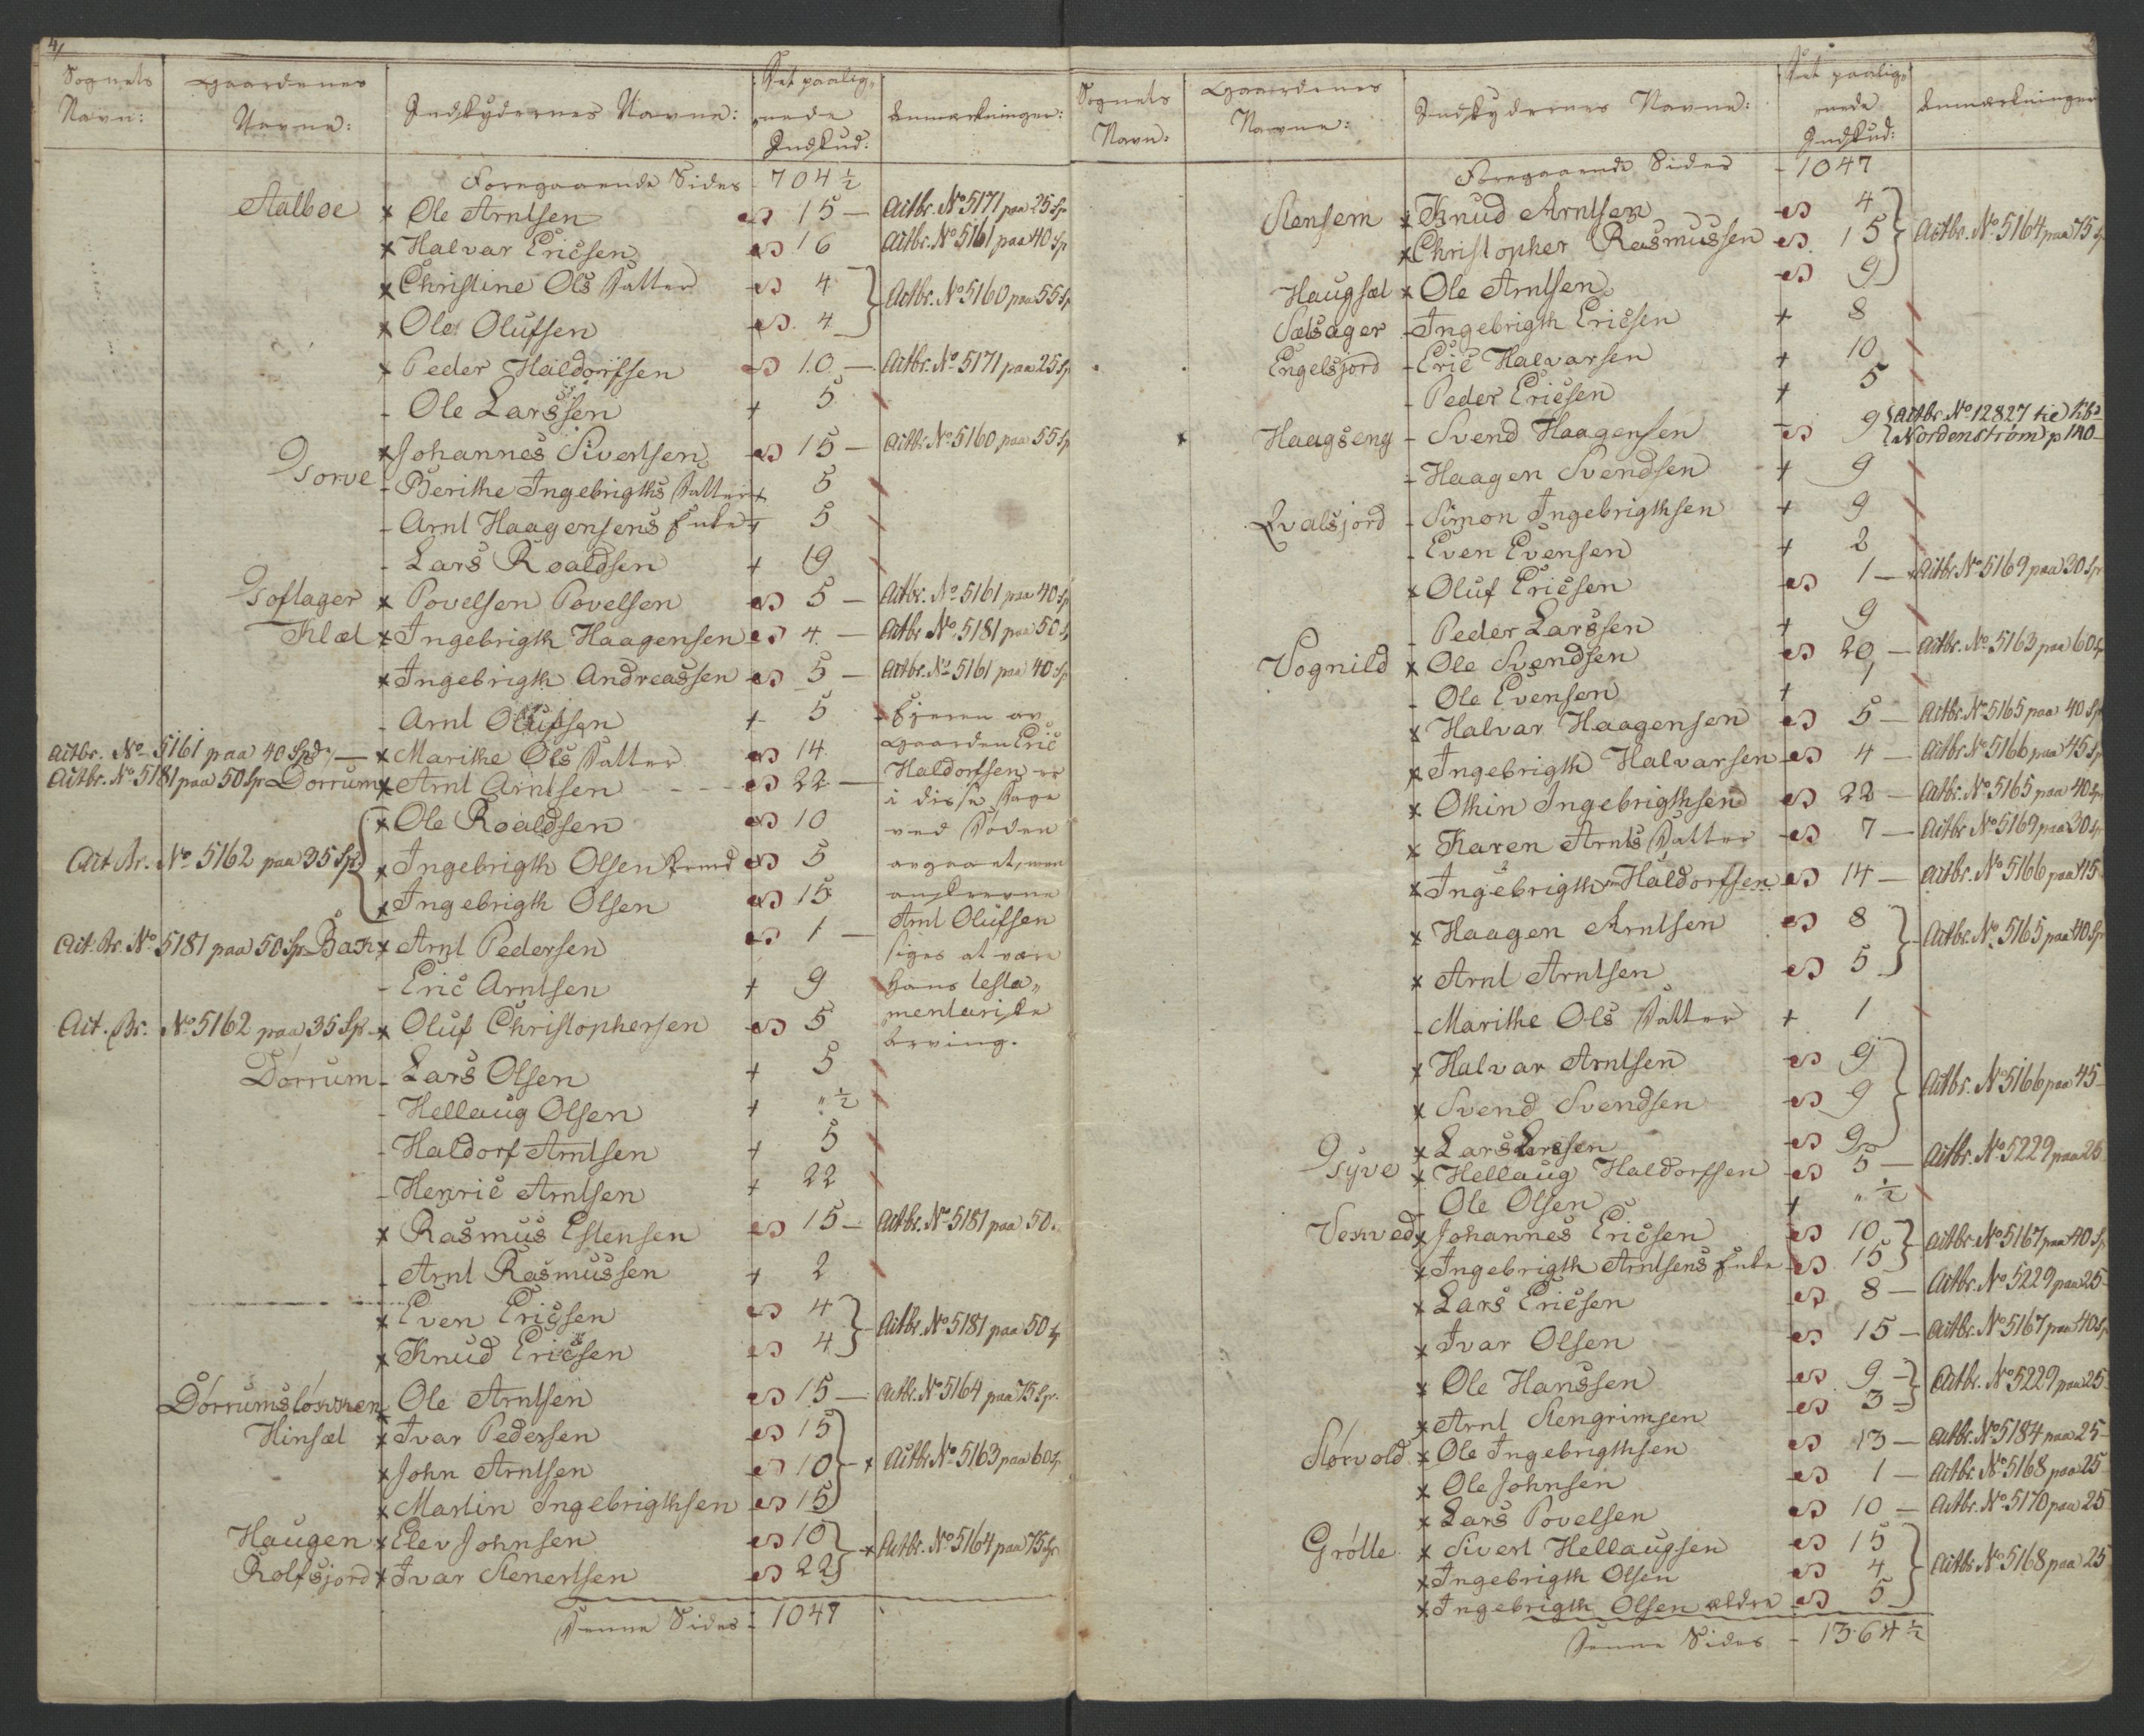 4/
Sognets Navn: Gaardenes Navne: Indskydernes Navne: Det paalig„nede Indskud: Anmærkninger:
Foregaaende Sides - 704 ½
Aalboe x Ole Arntsen 15 — Actbr. No 5171 paa 25 Sp
x Halvar Ericsen 16 Actbr. No 5161 paa 40 Sp
x Christine Ols Datter 4 } Actbr. No 5160 paa 55 Sp
x Ole Olufsen 4
x Peder Haldorfsen 10 — Actbr. No 5171 paa 25 Sp
- Ole Larssen + 5
x Johannes Sivertsen 15 — Actbr. No 5160 paa 55 Sp
Gorve - Berithe Ingebrigths Datter + 5
- Arnt Haagensens Enke + 5
- Lars Roaldsen + 19
x Povelsen Povelsen 5 — Actbr. No 5161 paa 40 Sp
Klæt x Ingebrigth Haagensen 4 — Actbr. No 5181 paa 50 Sp
x Ingebrigth Andreassen 5 — Actbr. No 5161 paa 40 Sp
- Arnt Olufsen + 5 Ejeren av
Actbr. No 5161 paa 40 Spd. — x Marithe Ols Datter 14 Gaarden Eric
Actbr. No 5181 paa 50 Sp Dorrum x Arnt Arntsen 22 — Haldorfsen er
x Ole Roaldsen 10 i disse Dage ved Døden
Act Br. No 5162 paa 35 Sp. x Ingebrigth Olsen 5 avgaaet, men
x Ingebrigth Olsen 15 anskrevne
Act. Br. No 5181 paa 50 Sp Bak x Arnt Pedersen 1 — Arnt Olufsen siges at være
- Eric Arntsen + 9 hans testa„
Act. Br. No 5162 paa 35 Sp. x Oluf Christophersen 5 mentariske Arving.
Dorrum - Lars Olsen + 5
- Hellaug Olsen + „ ½
- Haldorf Arntsen + 5
- Henric Arntsen + 22
x Rasmus Estensen 15 — Actbr. No 5181 paa 50.
- Arnt Rasmussen + 2
x Even Ericsen 4 } Actbr. No 5181 paa 50 Sp
x Knud Ericsen 4
Dørrumsløkken x Ole Arntsen 15 — Actbr. No 5164 paa 75 Sp.
Hinsæt x Ivar Pedersen 15
x John Arntsen 10 } x Actbr. No 5163 paa 60 Sp
x Martin Ingebrigthsen 15
Haugen x Elev Johnsen 10 } x Actbr. No 5164 paa 75 Sp
Rolfsjord x Ivar Stenertsen 22
Denne Sides - 1047
Sognets Navn: Gaardenes Navne: Indskydernes Navne: Det paalig„nede Indskud: Anmærkninger
Foregaaende Sides - 1047
Stensem x Knud Arntsen 4
x Christopher Rasmussen 15 } Actbr. No 5164 paa 75 Sp
Haugsæt x Ole Arntsen 9
Sætsager - Ingebrigth Ericsen + 8
Engelsjord - Eric Halvarsen + 10
- Peder Ericsen + 5
Haagseng - Svend Haagensen 9 { Actbr No 12827 til Kbs Nordenstrøm p 140 —
- Haagen Svendsen + 9
Qvalsjord - Simon Ingebrigthsen + 9
- Even Evensen + 2
x Oluf Ericsen 1 — Actbr No 5169 paa 30 Sp
- Peder Larssen + 9
Vognild x Ole Svendsen 20 — Actbr. No 5163 paa 60 Sp
- Ole Evensen + 1
x Halvar Haagensen 5 — Actbr. No 5165 paa 40 Sp
x Ingebrigth Halvarsen 4 — Actbr. No 5166 paa 45 Sp
x Othin Ingebrigthsen 22 — Actbr. No 5165 paa 40 Sp
x Karen Arnts Datter 7 — Actbr No 5169 paa 30 Sp
x Ingebrigth Haldorfsen 14 — Actbr. No 5166 paa 45
x Haagen Arntsen 8 } Actbr. No 5165 paa 40 Sp
x Arnt Arntsen 5
- Marithe Ols Datter + 1
x Halvar Arntsen 9 } Actbr. No 5166 paa 45 —
x Svend Svendsen 9
x Lars Larssen 9
x Hellaug Haldorfsen 5 — Actbr. No 5229 paa 25
- Ole Olsen + „ ½
x Johannes Ericsen 10 } Actbr. No 5167 paa 40 Sp
x Ingebrigth Arntsens Enke 15
x Lars Ericsen 8 — Actbr. No 5229 paa 25 —
x Ivar Olsen 15 — Actbr. No 5167 paa 40 Sp
x Ole Hanssen 9 } Actbr. No 5229 paa 25
x Arnt Stengrimsen 3
Størvold x Ole Ingebrigthsen 13 — Actbr. No 5184 paa 25 —
x Ole Johnsen 1 — Actbr. No 5168 paa 25
x Lars Povelsen 10 — Actbr. No 5170 paa 25
Grötte x Sivert Hellaugsen 15
x Ingebrigth Olsen 4 } Actbr No 5168 paa 25
x Ingebrigth Olsen ældre 5
Denne Sides - 1364 ½